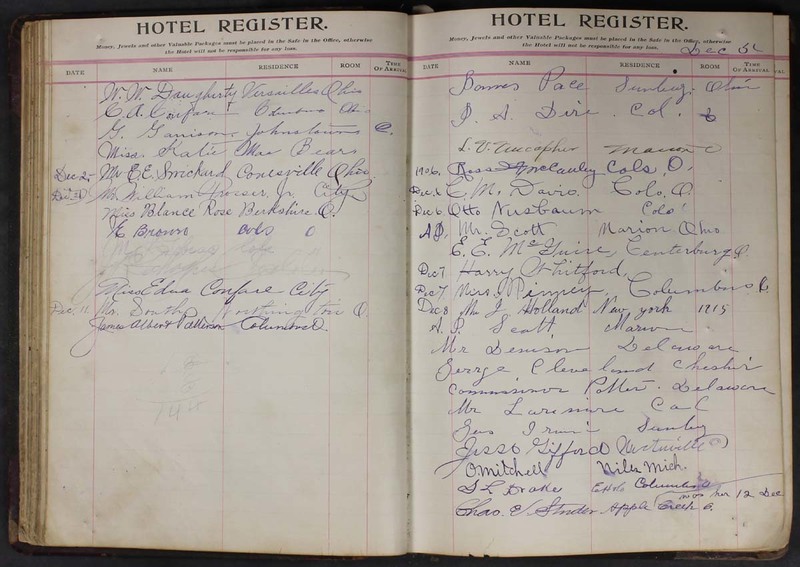 HOTEL REGISTER.
Money, Jewels and other Valuable Packages must be placed in the Safe in the Office, otherwise
the Hotel will not be responsible for any loss.
DATE NAME RESIDENCE ROOM TIME OF ARRIVAL
W. W. Daugherty Versailles Ohio
C. A.
G. Garrison Johnstown O.
Miss Katie Mae Bears
Dec 25 Mr E. E. Smickard Ohio
Mr William Jr City
Miss Blance Rose Berkshire O.
E Brown cols O
Miss Edna Confare City
Dec. 11 Mr. South Worthington O.
James Albert Patterson Columbus O.
HOTEL REGISTER.
Money, Jewels and other Valuable Packages must be placed in the Safe in the Office, otherwise
the Hotel will not be responsible for any loss.
Dec 5
DATE NAME RESIDENCE ROOM TIME OF ARRIVAL
Pace Sunbury Ohio
Col. 6
Marion O
1906. McCauley Cols, O.
Dec. 6 C. M. Davis Colo, O.
Dec 6 Otto Nusbaum Cols
Mr. Scott Marion Ohio
E. E. McGuire, Centerburg O.
Dec 7 Harry Whitford,
Dec 7 Mrs. Pinney, Columbus O.
Dec 8 Mr J Holland New York 1915
A. P. Scott Marion
Mr Denison Delaware
George Cleveland Cheshir
Commissioner Potter. Delaware
Mr Larimore Col
Geo Irwin Sunbury
Jesse Gifford O
O Mitchell Niles Mich.
S L Drake Columbus O
was her 12 Dec
Chas. E. Studer Apple Creek O.